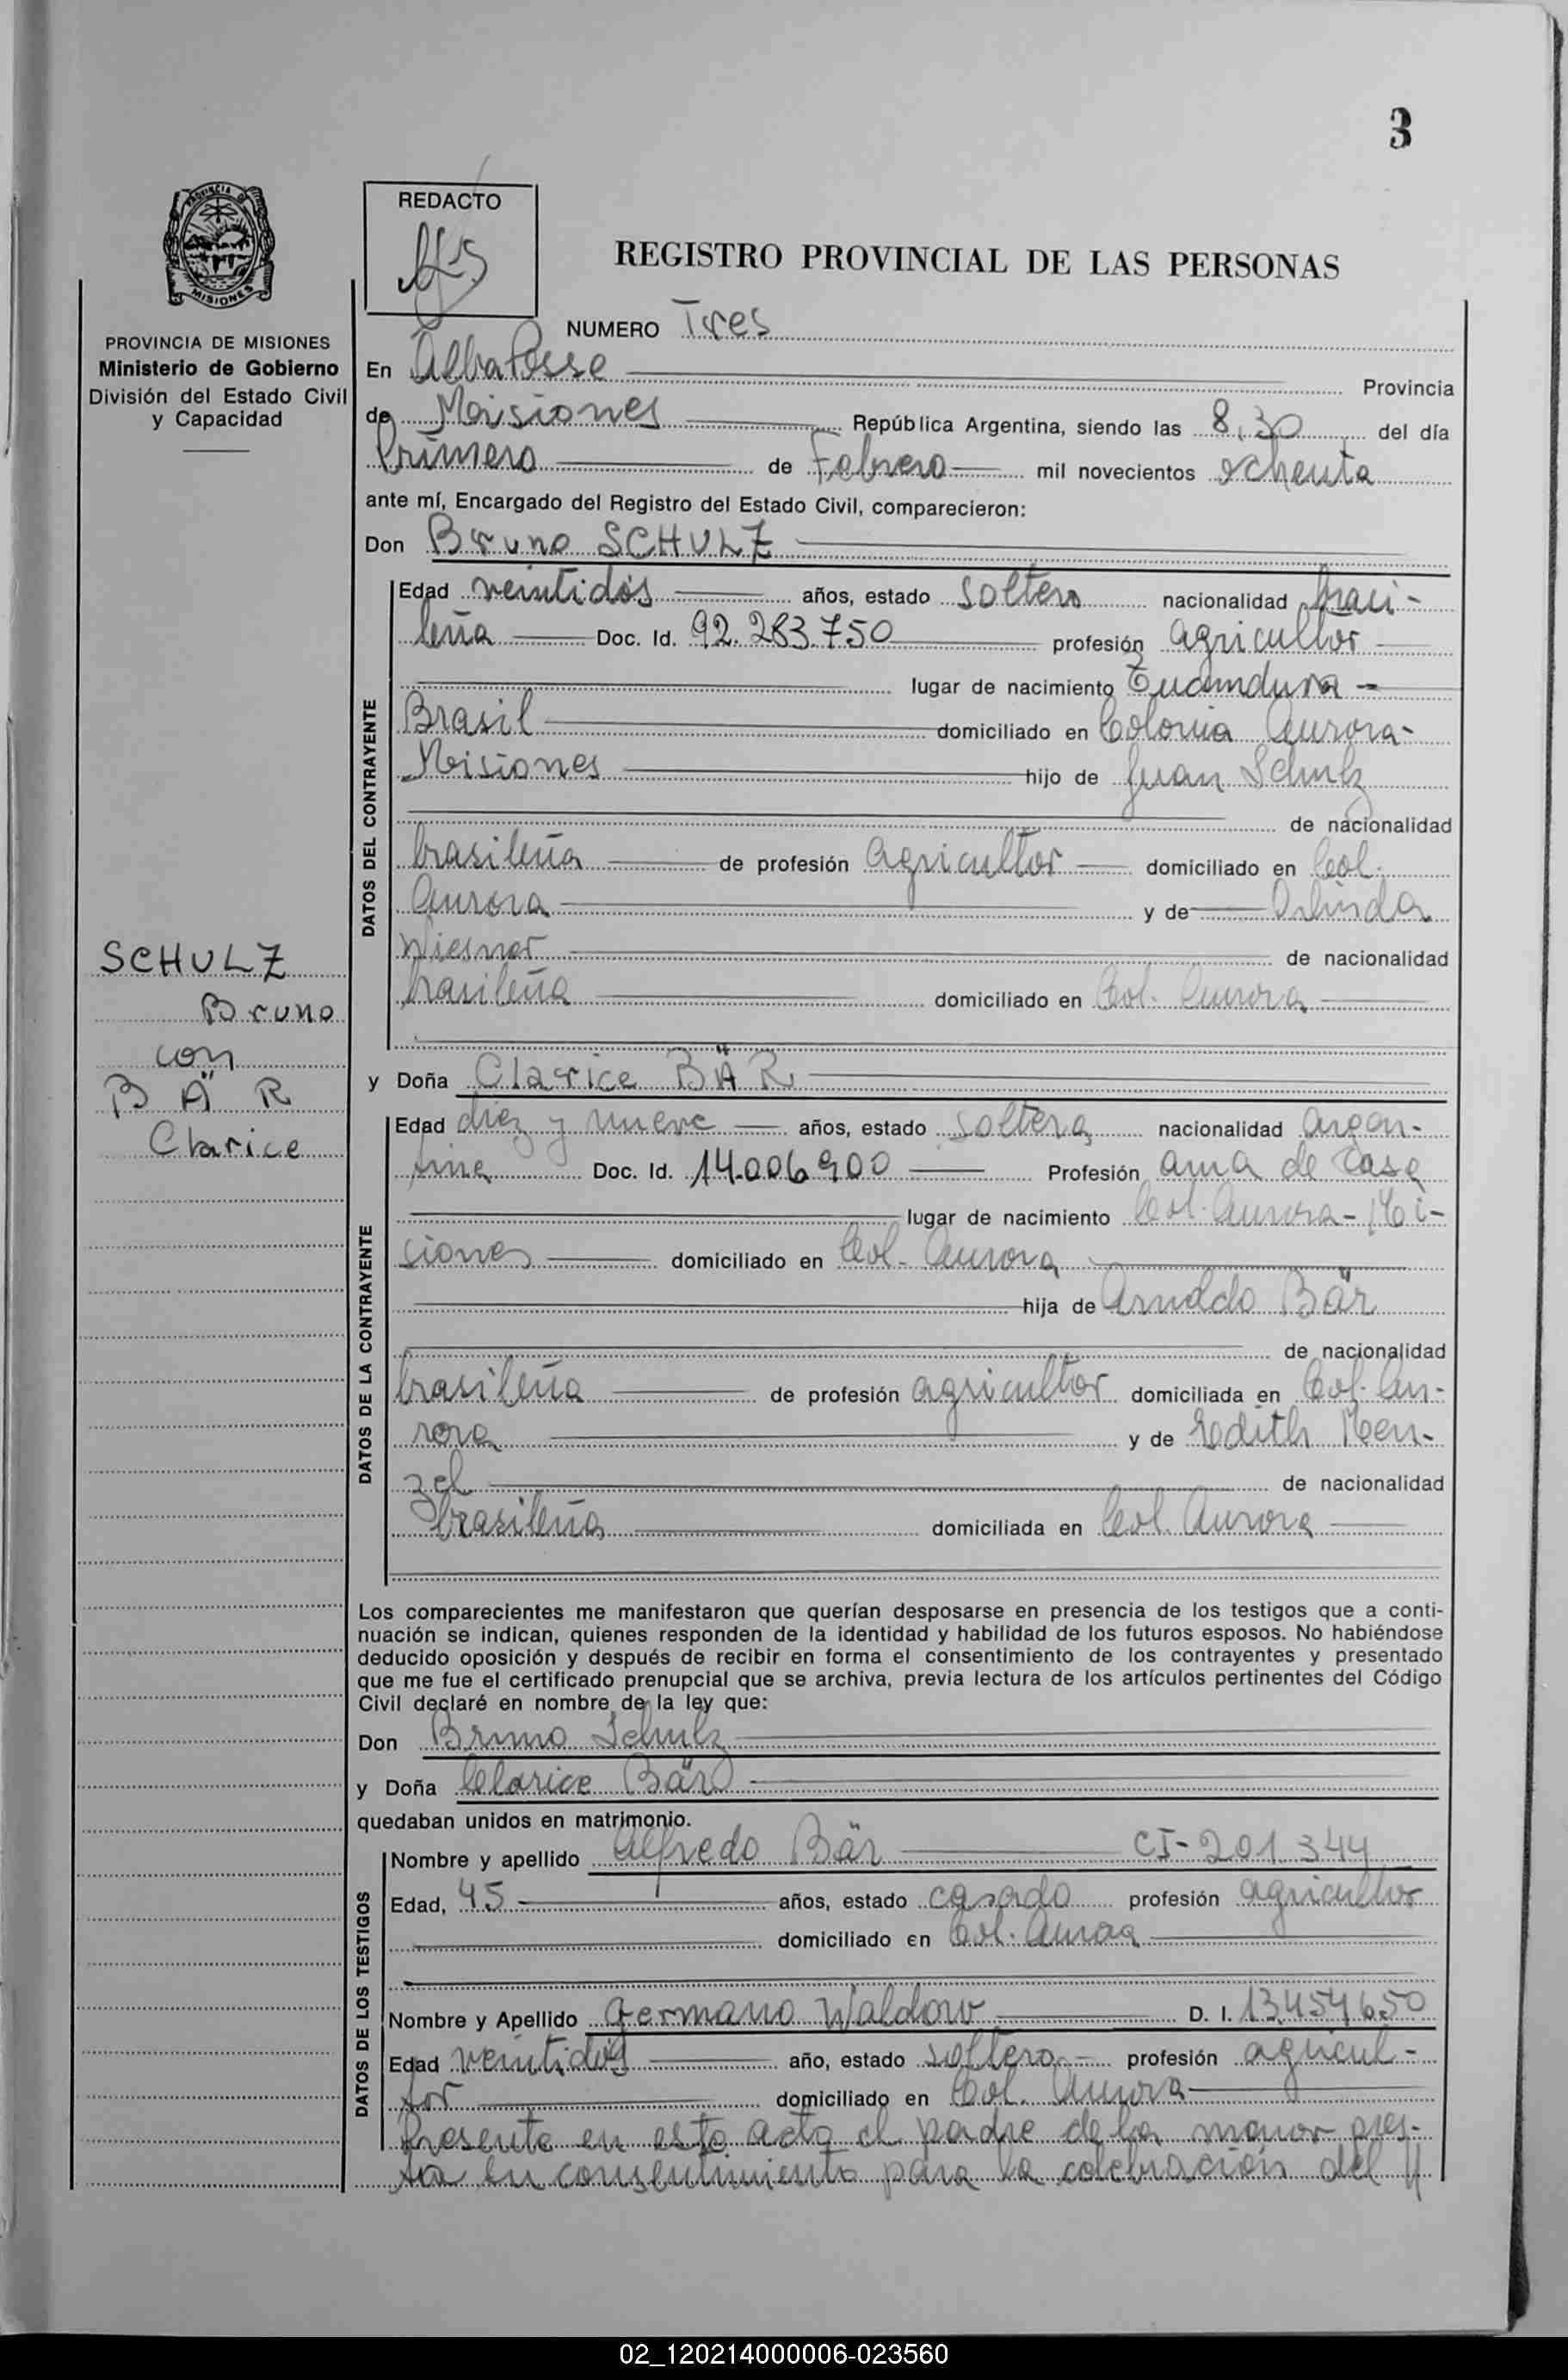 3
REDACTO
REGISTRO PROVINCIAL DE LAS PERSONAS
PROVINCIA DE
MISIONES
PROVINCIA DE MISIONES
Ministerio de Gobierno
División del Estado Civil
y Capacidad
NUMERO Tres
En Alba Posse Provincia
de Misiones República Argentina, siendo las 8,30 del día
Primero de Febrero mil novecientos ochenta
ante mí, Encargado del Registro del Estado Civil, comparecieron:
Don Bruno SCHULZ
DATOS DEL CONTRAYENTE
Edad veintidós años, estado soltero nacionalidad brasi-
leña Doc. Id. 92.283.750 profesión agricultor
lugar de nacimiento Tucunduva -
Brasil domiciliado en Colonia Aurora-
Misiones hijo de Juan Schulz
de nacionalidad
brasileña de profesión agricultor domiciliado en Col.
Aurora y de Orlinda
Wiesner de nacionalidad
brasileña domiciliado en Col. Aurora
SCHULZ
Bruno
con
BÄR
Clarice
y Doña Clarice BÄR
DATOS DE LA CONTRAYENTE
Edad diez y nueve años, estado soltera nacionalidad argen-
tina Doc. Id. 14.006.900 Profesión ama de casa
lugar de nacimiento Col. Aurora - Mi-
siones domiciliado en Col. Aurora
hija de Arnoldo Bär
de nacionalidad
brasileña de profesión agricultor domiciliada en Col. Au-
rora y de Edith Men-
zel de nacionalidad
brasileña domiciliada en Col. Aurora
Los comparecientes me manifestaron que querían desposarse en presencia de los testigos que a conti-
nuación se indican, quienes responden de la identidad y habilidad de los futuros esposos. No habiéndose
deducido oposición y después de recibir en forma el consentimiento de los contrayentes y presentado
que me fue el certificado prenupcial que se archiva, previa lectura de los artículos pertinentes del Código
Civil declaré en nombre de la ley que:
Don Bruno Schulz
y Doña Clarice Bär
quedaban unidos en matrimonio.
DATOS DE LOS TESTIGOS
Nombre y apellido Alfredo Bär CI-201.344
Edad, 45 años, estado casado profesión agricultor
domiciliado en Col. Aurora
Nombre y Apellido Germano Waldow D. I. 13.454.650
Edad veintidós año, estado soltero - profesión agricul-
tor domiciliado en Col. Aurora
Presente en este acto el padre de la menor pres-
ta su consentimiento para la celebración del
02_120214000006-023560